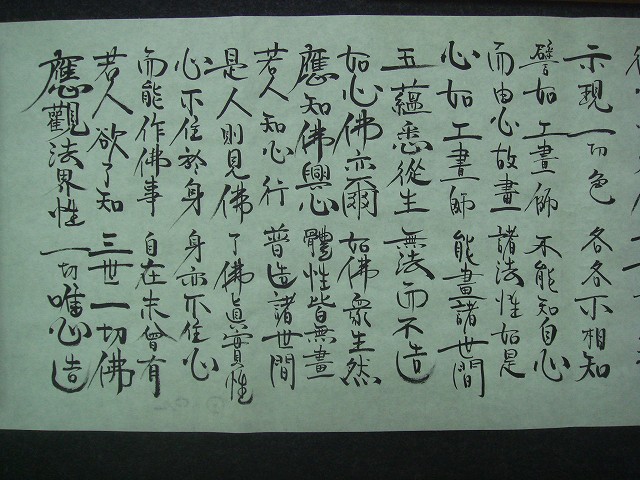 示現一切色 各各不相知
譬如工畫師 不能知自心
而由心故畫 諸法性如是
心如工畫師 能畫諸世間
五蘊悉從生 無法而不造
如心佛亦爾 如佛衆生然
應知佛與心 體性皆無盡
若人知心行 普造諸世間
是人則見佛 了佛眞實性
心不住於身 身亦不住心
而能作佛事 自在未曾有
若人欲了知 三世一切佛
應觀法界性 一切唯心造